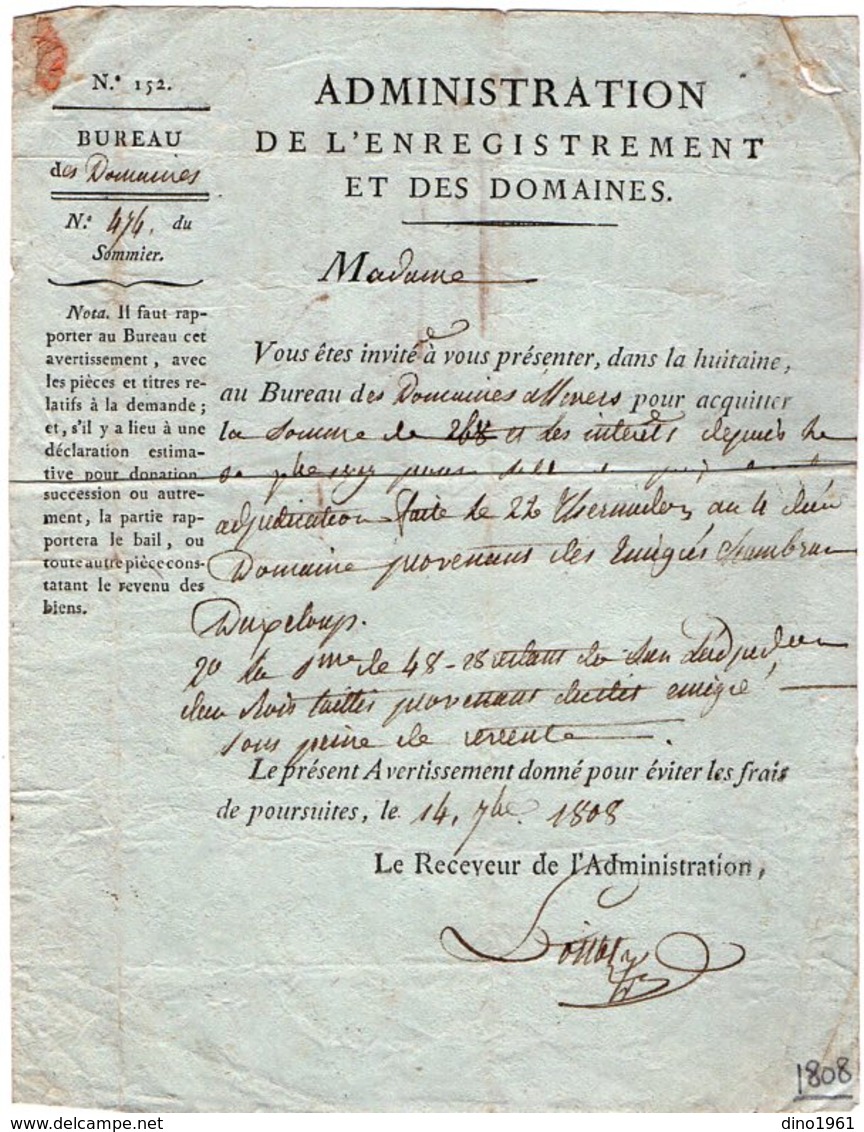 N.° 152.
BUREAU
des Domaines
N.° 474. du
Sommier.
Nota. Il faut rap-
porter au Bureau cet
avertissement, avec
les pièces et titres re-
latifs à la demande;
et, s'il y a lieu à une
déclaration estima-
tive pour donation,
succession ou autre-
ment, la partie rap-
portera le bail, ou
toute autre pièce cons-
tatant le revenu des
biens.
ADMINISTRATION
DE L'ENREGISTREMENT
ET DES DOMAINES.
Madame
Vous êtes invitée à vous présenter, dans la huitaine,
au Bureau des Domaines pour acquitter
la somme de 268 et des intérêts depuis le
pour
adjudication faite le 22 Thermidor an 4 d'un
Domaine provenant des Emigrés
Dupeloup.
2° la s.me de 48-28 restant de
d'un bois taillis provenant dudit emigré
sous peine de revente.
Le présent Avertissement donné pour éviter les frais
de poursuites, le 14. 7bre. 1808
Le Receveur de l'Administration,
1808
delcampe.net
dino1961